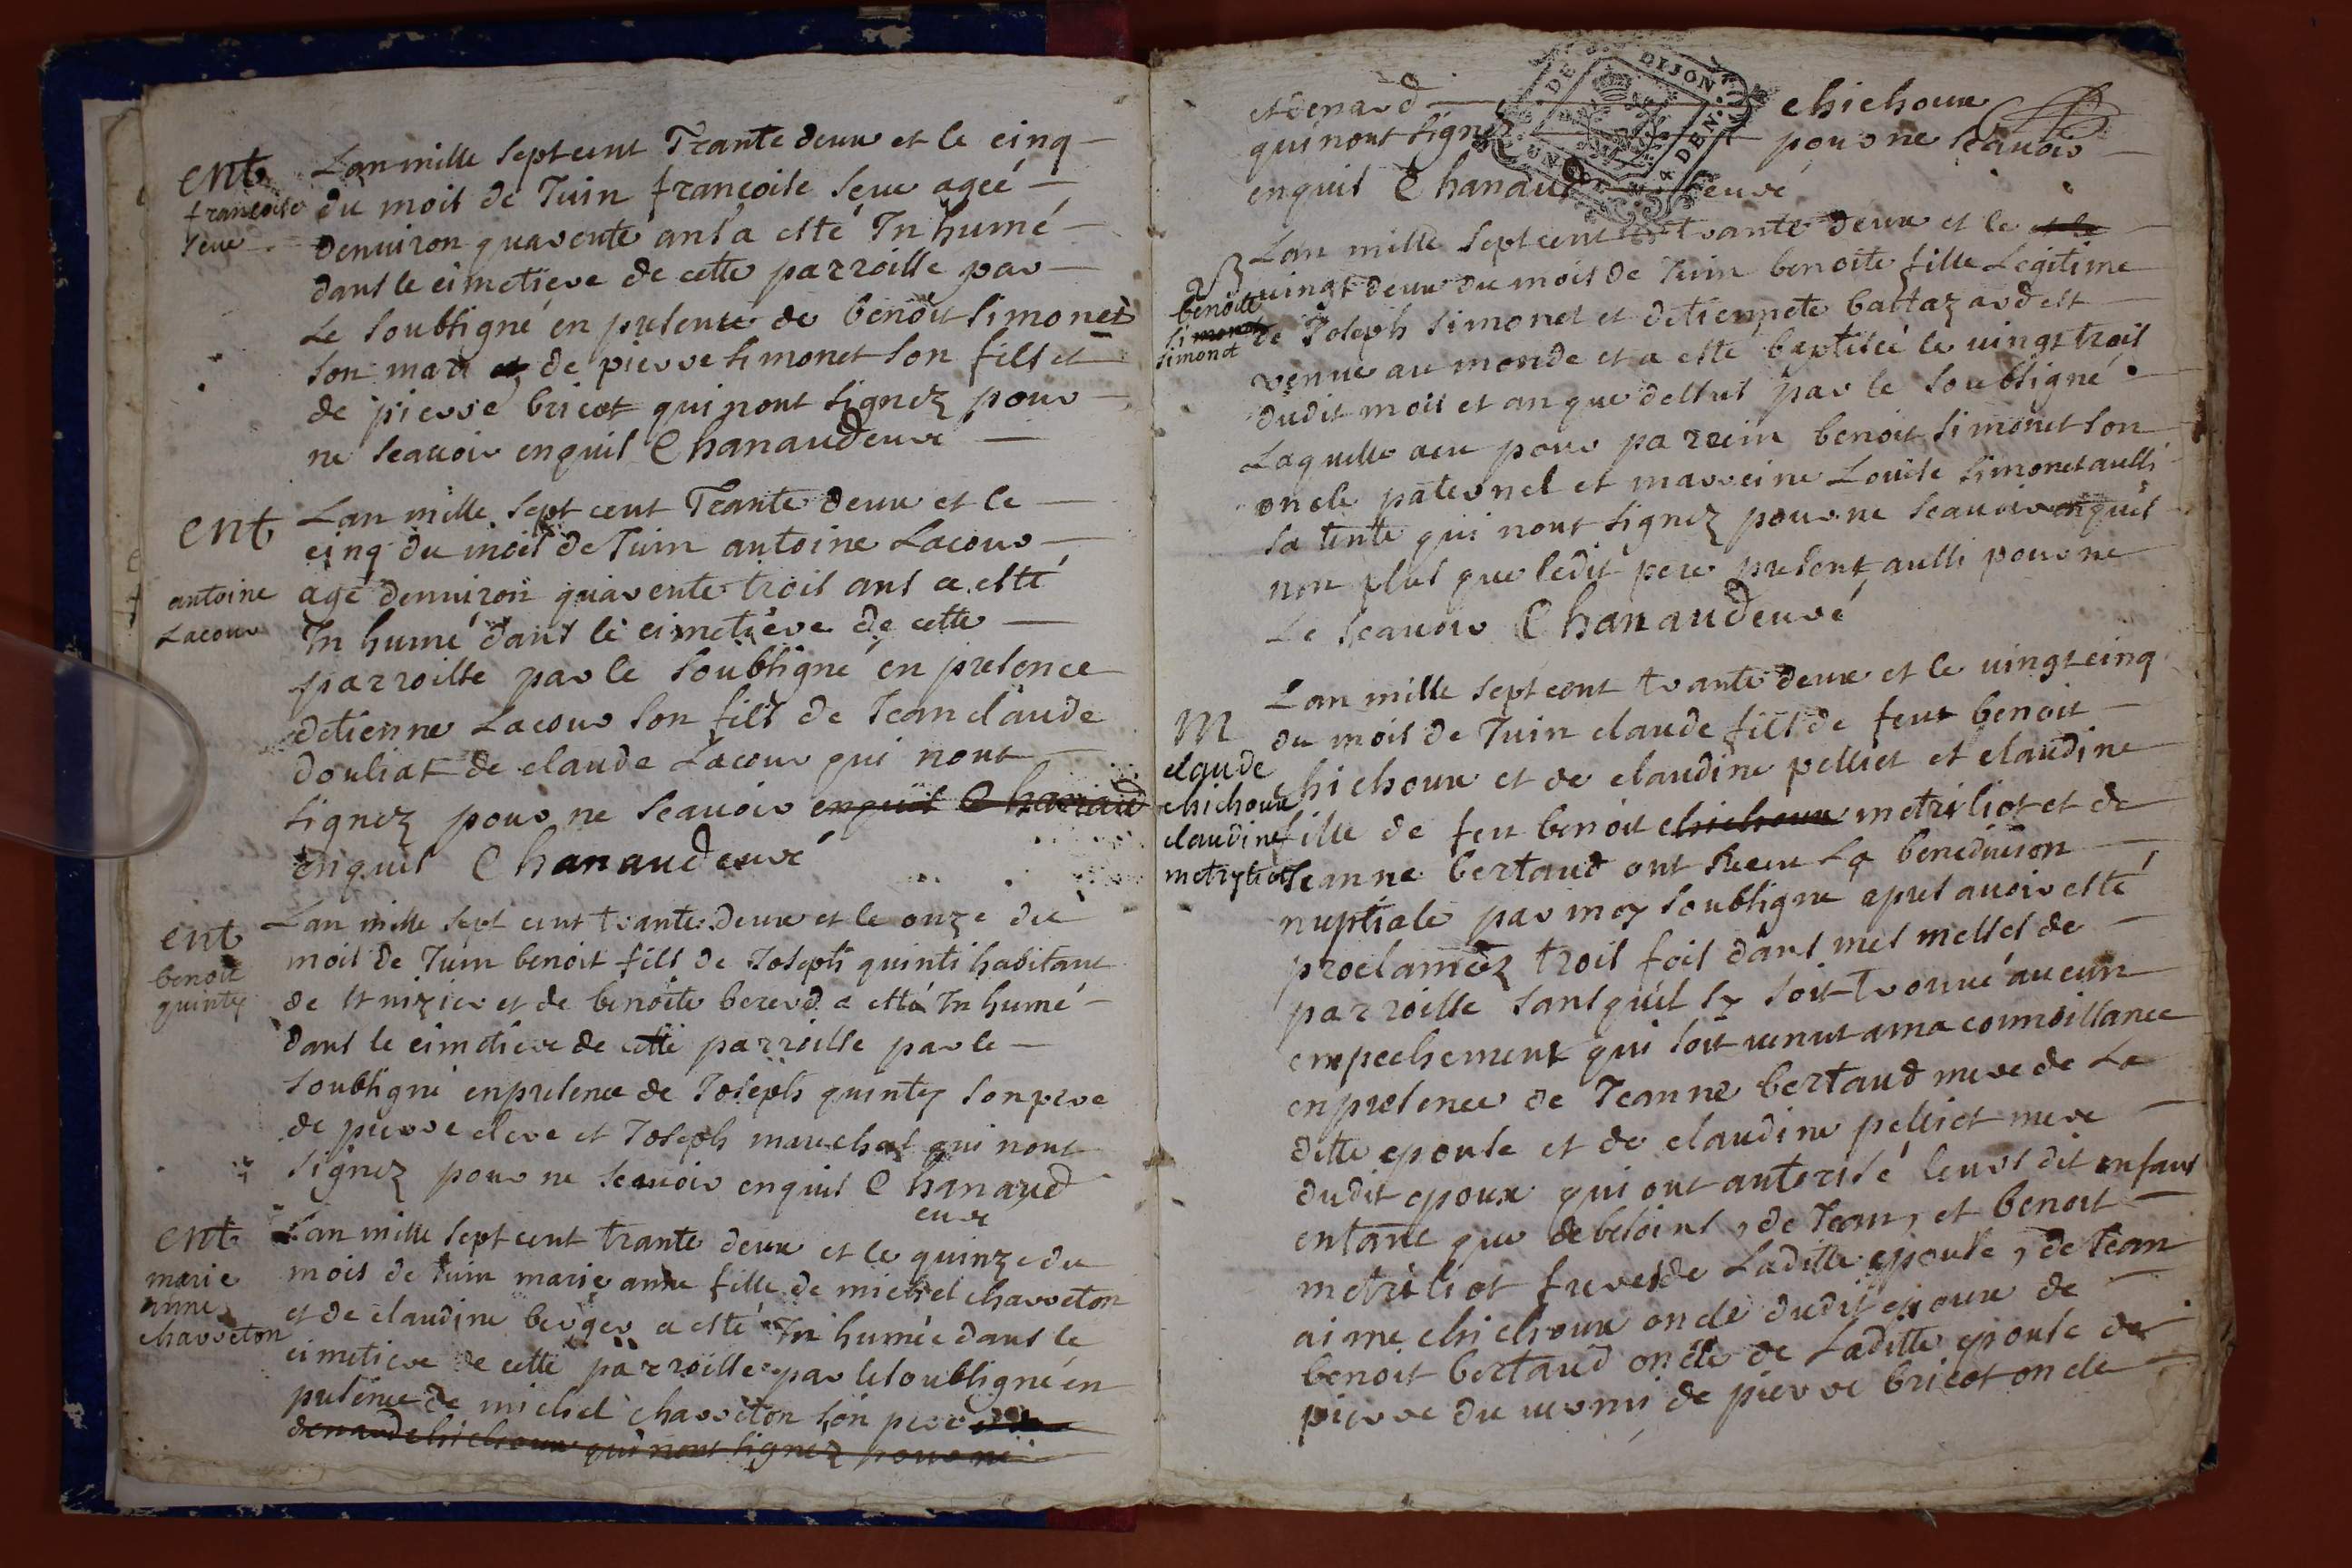 ent
françoise
seue
Lan mille sept cent Trante deux et le cinq
du mois de Juin françoise seue ageé
denuiron quarente ans a esté Inhumé
dans le cimetiere de cette parroisse par
Le soubsigné en presence de benoit simonet
son mari et de pierre simonet son fils et
de pierre bricot qui nont signez pour
ne scauoir enquis Chanaud curé
ent
antoine
Lacour
Lan mille sept cent Trante deux et le
cinq du mois de Juin antoine Lacour
agé denuiron quarente trois ans a esté
In humé dans le cimetiere de cette
parroisse par le soubsigné en presence
detienne Lacour son fils de Jean claude
douliat de claude Lacour qui nont
signez pour ne scauoir enquis Chanaud
enquis Chanaud curé
ent
benoit
quinty
Lan mille sept cent trante deux et le onze du
mois de Juin benoit fils de Joseph quinti habitant
de st nizier et de benoite bererd a esté In humé
dans le cimetiere de cette parroisse par le
soubsigné en presence de Joseph quinty son pere
de pierre clere et Joseph marechal qui nont
signez pour ne scauoir enquis Chanaud
curé
ent
marie
anne
charreton
Lan mille sept cent trante deux et le quinze du
mois de Juin marie anne fille de michel charreton
et de claudine berger a esté In humée dans le
cimetiere de cette parroisse par le soubsigné en
presence de michel charreton son pere
denard chichoux qui nont signez pour ne
et denard chichoux
qui nont signez pour ne scauoir
enquis Chanaud curé
DE DIJON
UN 4 DEN.
B
benoite
simonet
simonet
Lan mille sept cent trante deux et le et le
vingt deux du mois de Juin benoite fille Legitime
de Joseph simonet et detiennete baltazard est
venue au monde et a esté baptiseé le uingt trois
dudit mois et an que dessus par le soubsigné
Laquelle a eu pour parrein benoit simonet son
oncle paternel et marreine Louise simonet aussi
sa tente qui nont signez pour ne scauoir enquis
non plus que ledit pere present aussi pour ne
Le scauoir Chanaud curé
M
claude
chichoux
claudine
metryliot
Lan mille sept cent trante deux et le uingt cinq
du mois de Juin claude fils de feut benoit
chichoux et de claudine pelliet et claudine
fille de feu benoit chichoux metriliot et de
Jeanne bertaud ont Receu La benediction
nuptiale par moy soubsigné apres auoir esté
proclamez trois fois dans mes messes de
parroisse sans quil sy soit trouué aucun
empechement qui soit uenut a ma connoissance
en presence de Jeanne bertaud mere de La
ditte epouse et de claudine pelliet mere
dudit epoux qui ont autorisé leurs dit enfant
entant que de besoins, de Jean, et benoit
metriliot freres de Laditte epouse, de Jean
aime chichoux oncle dudit epoux de
benoit bertaud oncle de Laditte epouse de
pierre du uerni de pierre bricot oncle